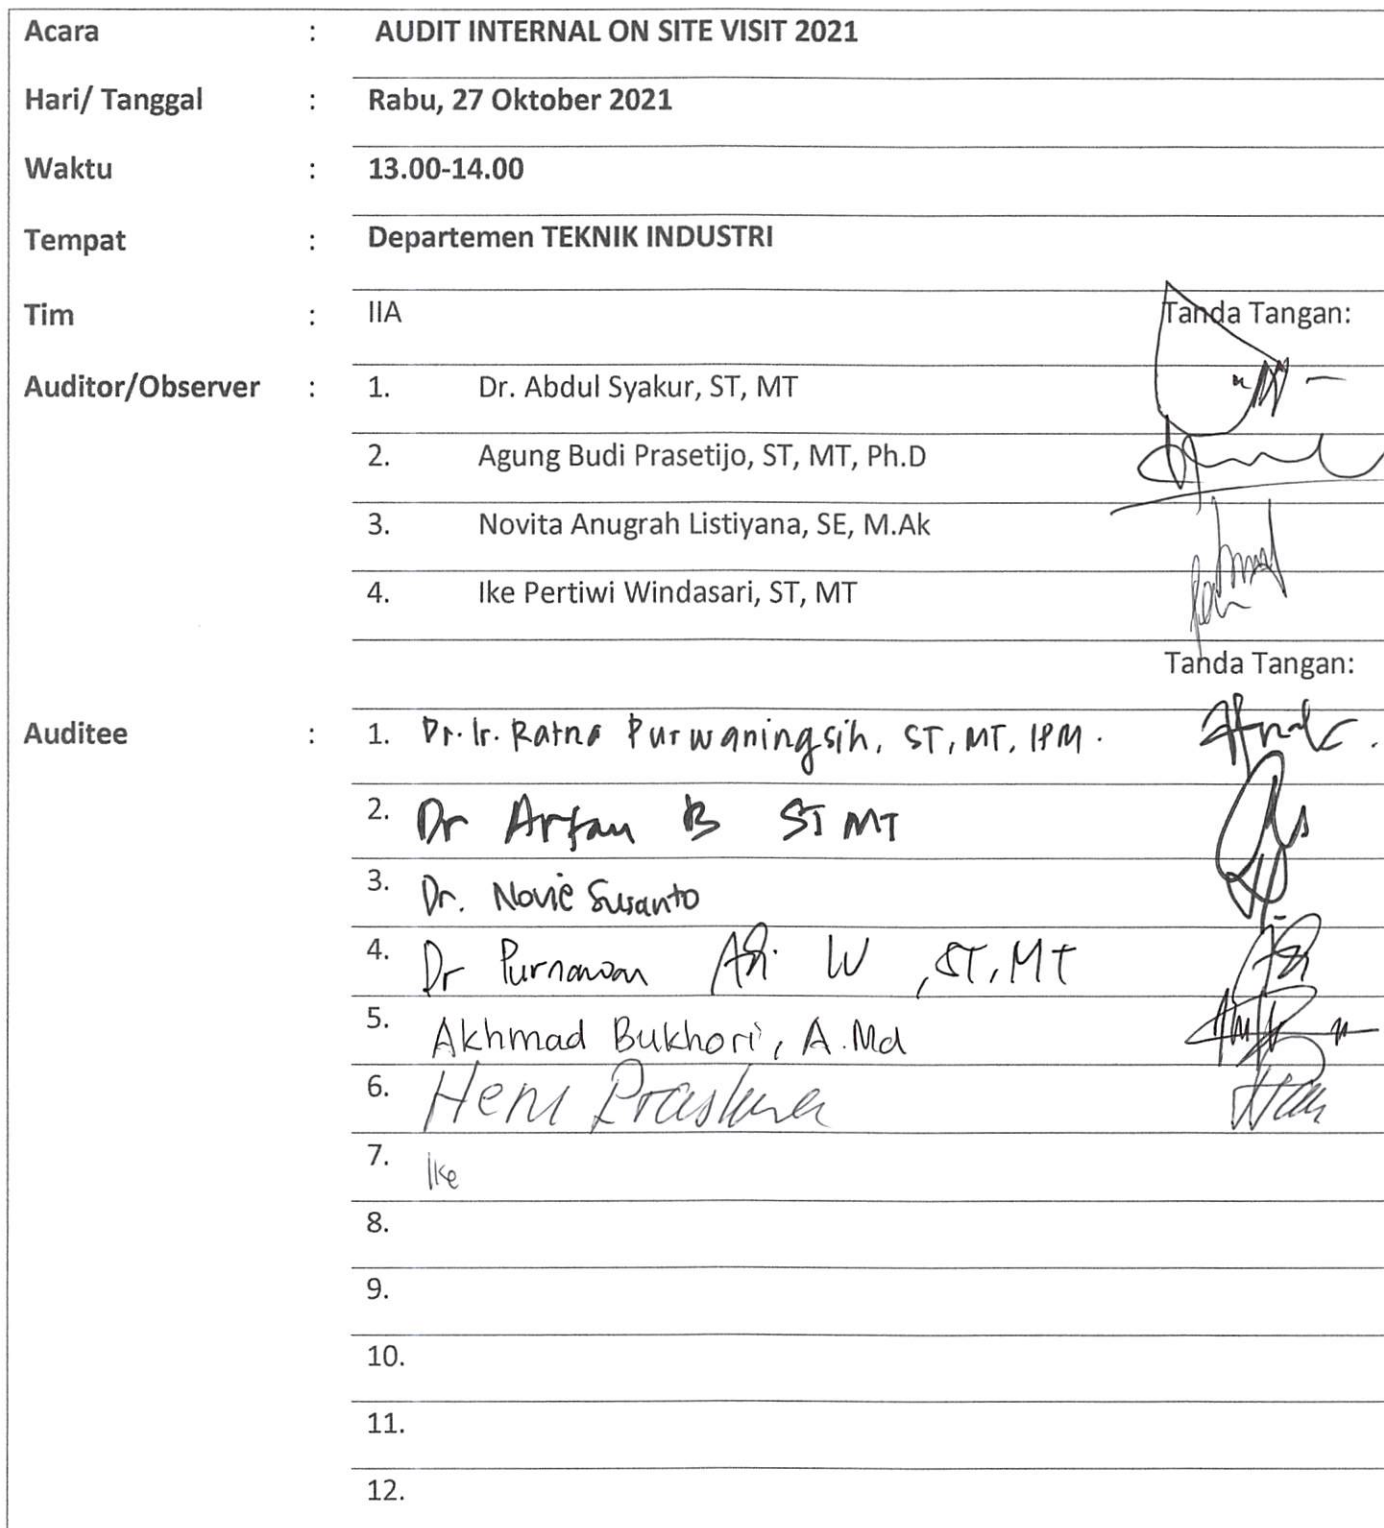 Acara : AUDIT INTERNAL ON SITE VISIT 2021
Hari/ Tanggal : Rabu, 27 Oktober 2021
Waktu : 13.00-14.00
Tempat : Departemen TEKNIK INDUSTRI
Tim : IIA Tanda Tangan:
Auditor/Observer : 1. Dr. Abdul Syakur, ST, MT
2. Agung Budi Prasetijo, ST, MT, Ph.D
3. Novita Anugrah Listiyana, SE, M.Ak
4. Ike Pertiwi Windasari, ST, MT
Tanda Tangan:
Auditee : 1. Dr. Ir. Ratna Purwaningsih, ST, MT, IPM.
2. Dr Arfan B ST MT
3. Dr. Novie Susanto
4. Dr Purnawan Adi W , ST, MT
5. Akhmad Bukhori, A.Md
6. Heni
7. Ike
8.
9.
10.
11.
12.